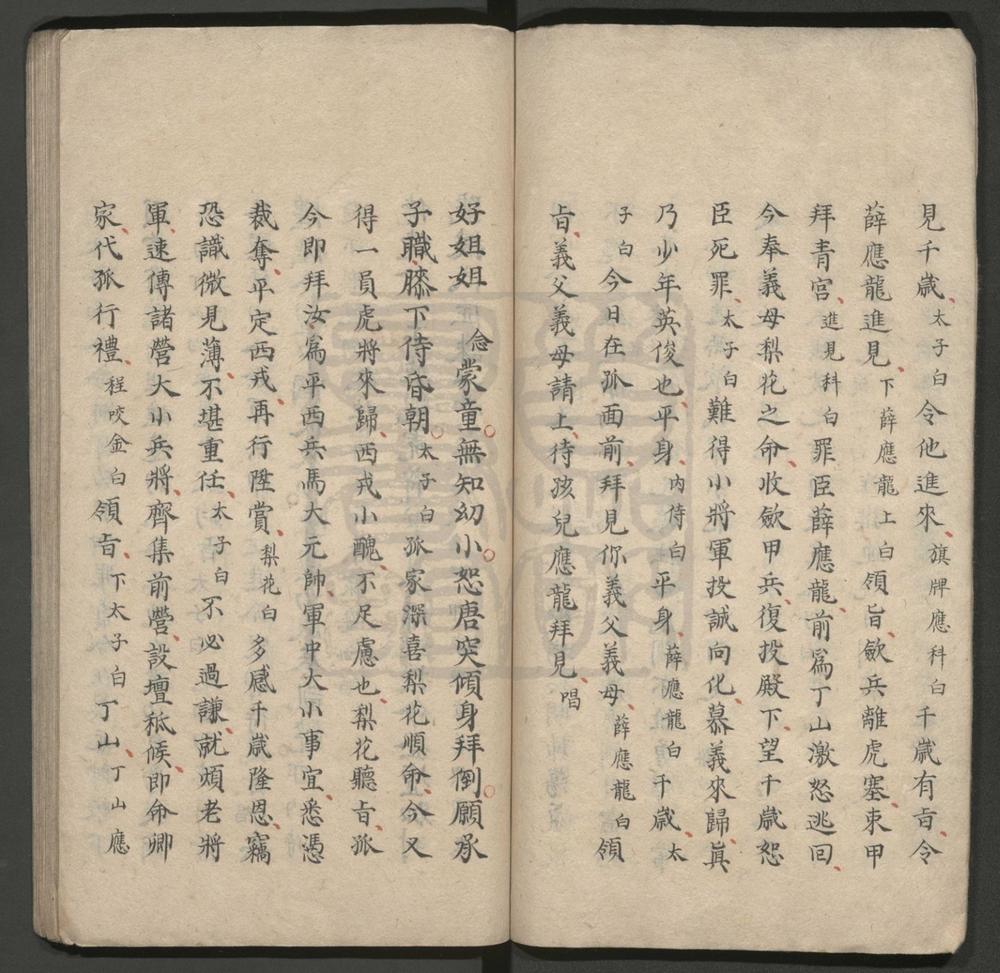 見千歲、太子白令他進來、旗牌應科白千歲有旨、令
薛應龍進見、下薛應龍上白領旨、歛兵離虎塞、束甲
拜青宮、進見科白罪臣薛應龍、前爲丁山激怒逃回、
今奉義母梨花之命、收歛甲兵、復投殿下、望千歲恕
臣死罪、太子白難得小將軍投誠向化、慕義來歸、眞
乃少年英俊也、平身、內侍白平身、薛應龍白千歲、太
子白今日在孤面前、拜見你義父義母、薛應龍白領
旨、義父義母請上、待孩兒應龍拜見、唱
好姐姐 念蒙童。無知幼小。恕唐突傾身拜倒。願承
子職、膝下侍昏朝。太子白孤家深喜梨花順命、今又
得一員虎將來歸、西戎小醜、不足慮也、梨花聽旨、孤
今即拜汝、爲平西兵馬大元帥、軍中大小事宜、悉憑
裁奪、平定西戎、再行陞賞、梨花白多感千歲隆恩、竊
恐識微見薄、不堪重任、太子白不必過謙、就煩老將
軍、速傳諸營大小兵將、齊集前營、設壇秪候、即命卿
家、代孤行禮、程咬金白領旨、下太子白丁山、丁山應